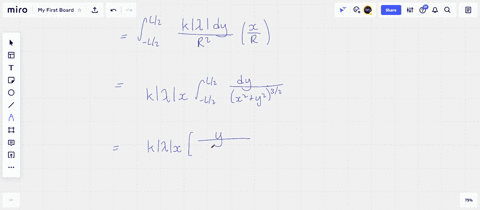 miro My First Board Share
= ∫_{-L/2}^{L/2} k|λ|dy / R² (x/R)
= k|λ|x ∫_{-L/2}^{L/2} dy / (x²+y²)^{3/2}
= k|λ|x [ y /
79%